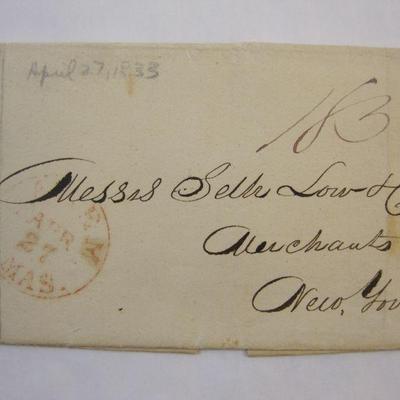 April 27, 1833
18 3
Messrs Seth Low & C
Merchants
New, Yor
APR
27
MAS.